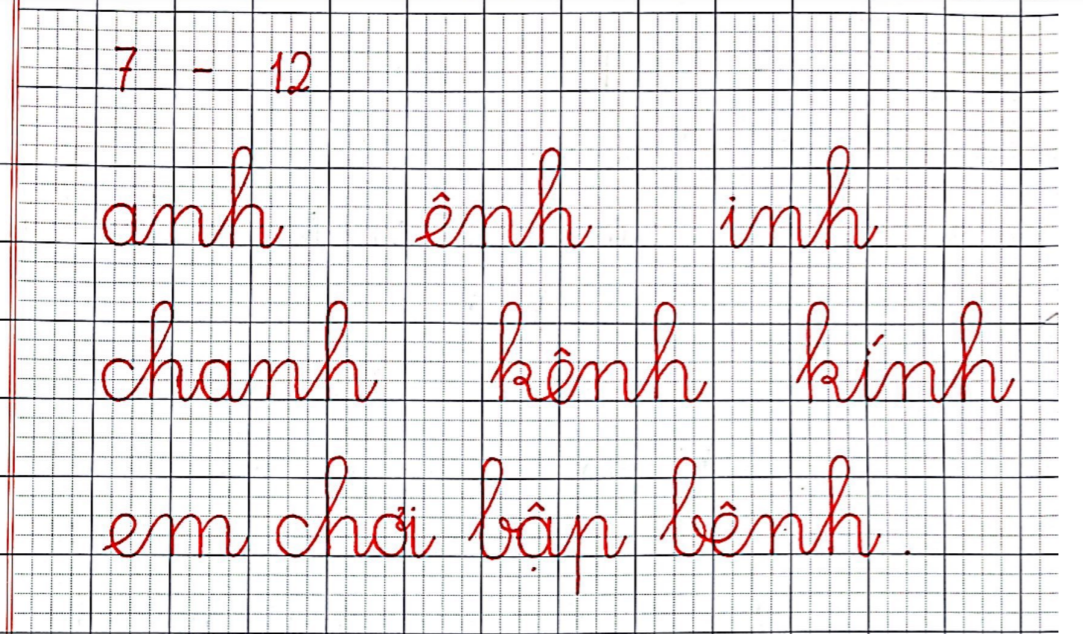 7 - 12
anh ênh inh
chanh kênh kính
em chơi bập bênh.